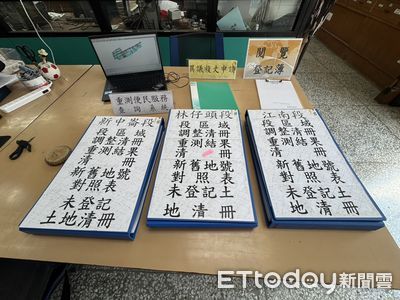 重測便民服務
查詢系統
異議複丈申請
閱覽
登記簿
新中崙段
區域
調整清冊
重測結果
清冊
新舊地號
對照表
未登記土
土地清冊
林仔頭段
區域
調整清冊
重測結果
清冊
新舊地號
對照表
未登記土
地清冊
江南段
區域
調整清冊
重測結果
清冊
新舊地號
對照表
未登記土
地清冊
ETtoday新聞雲